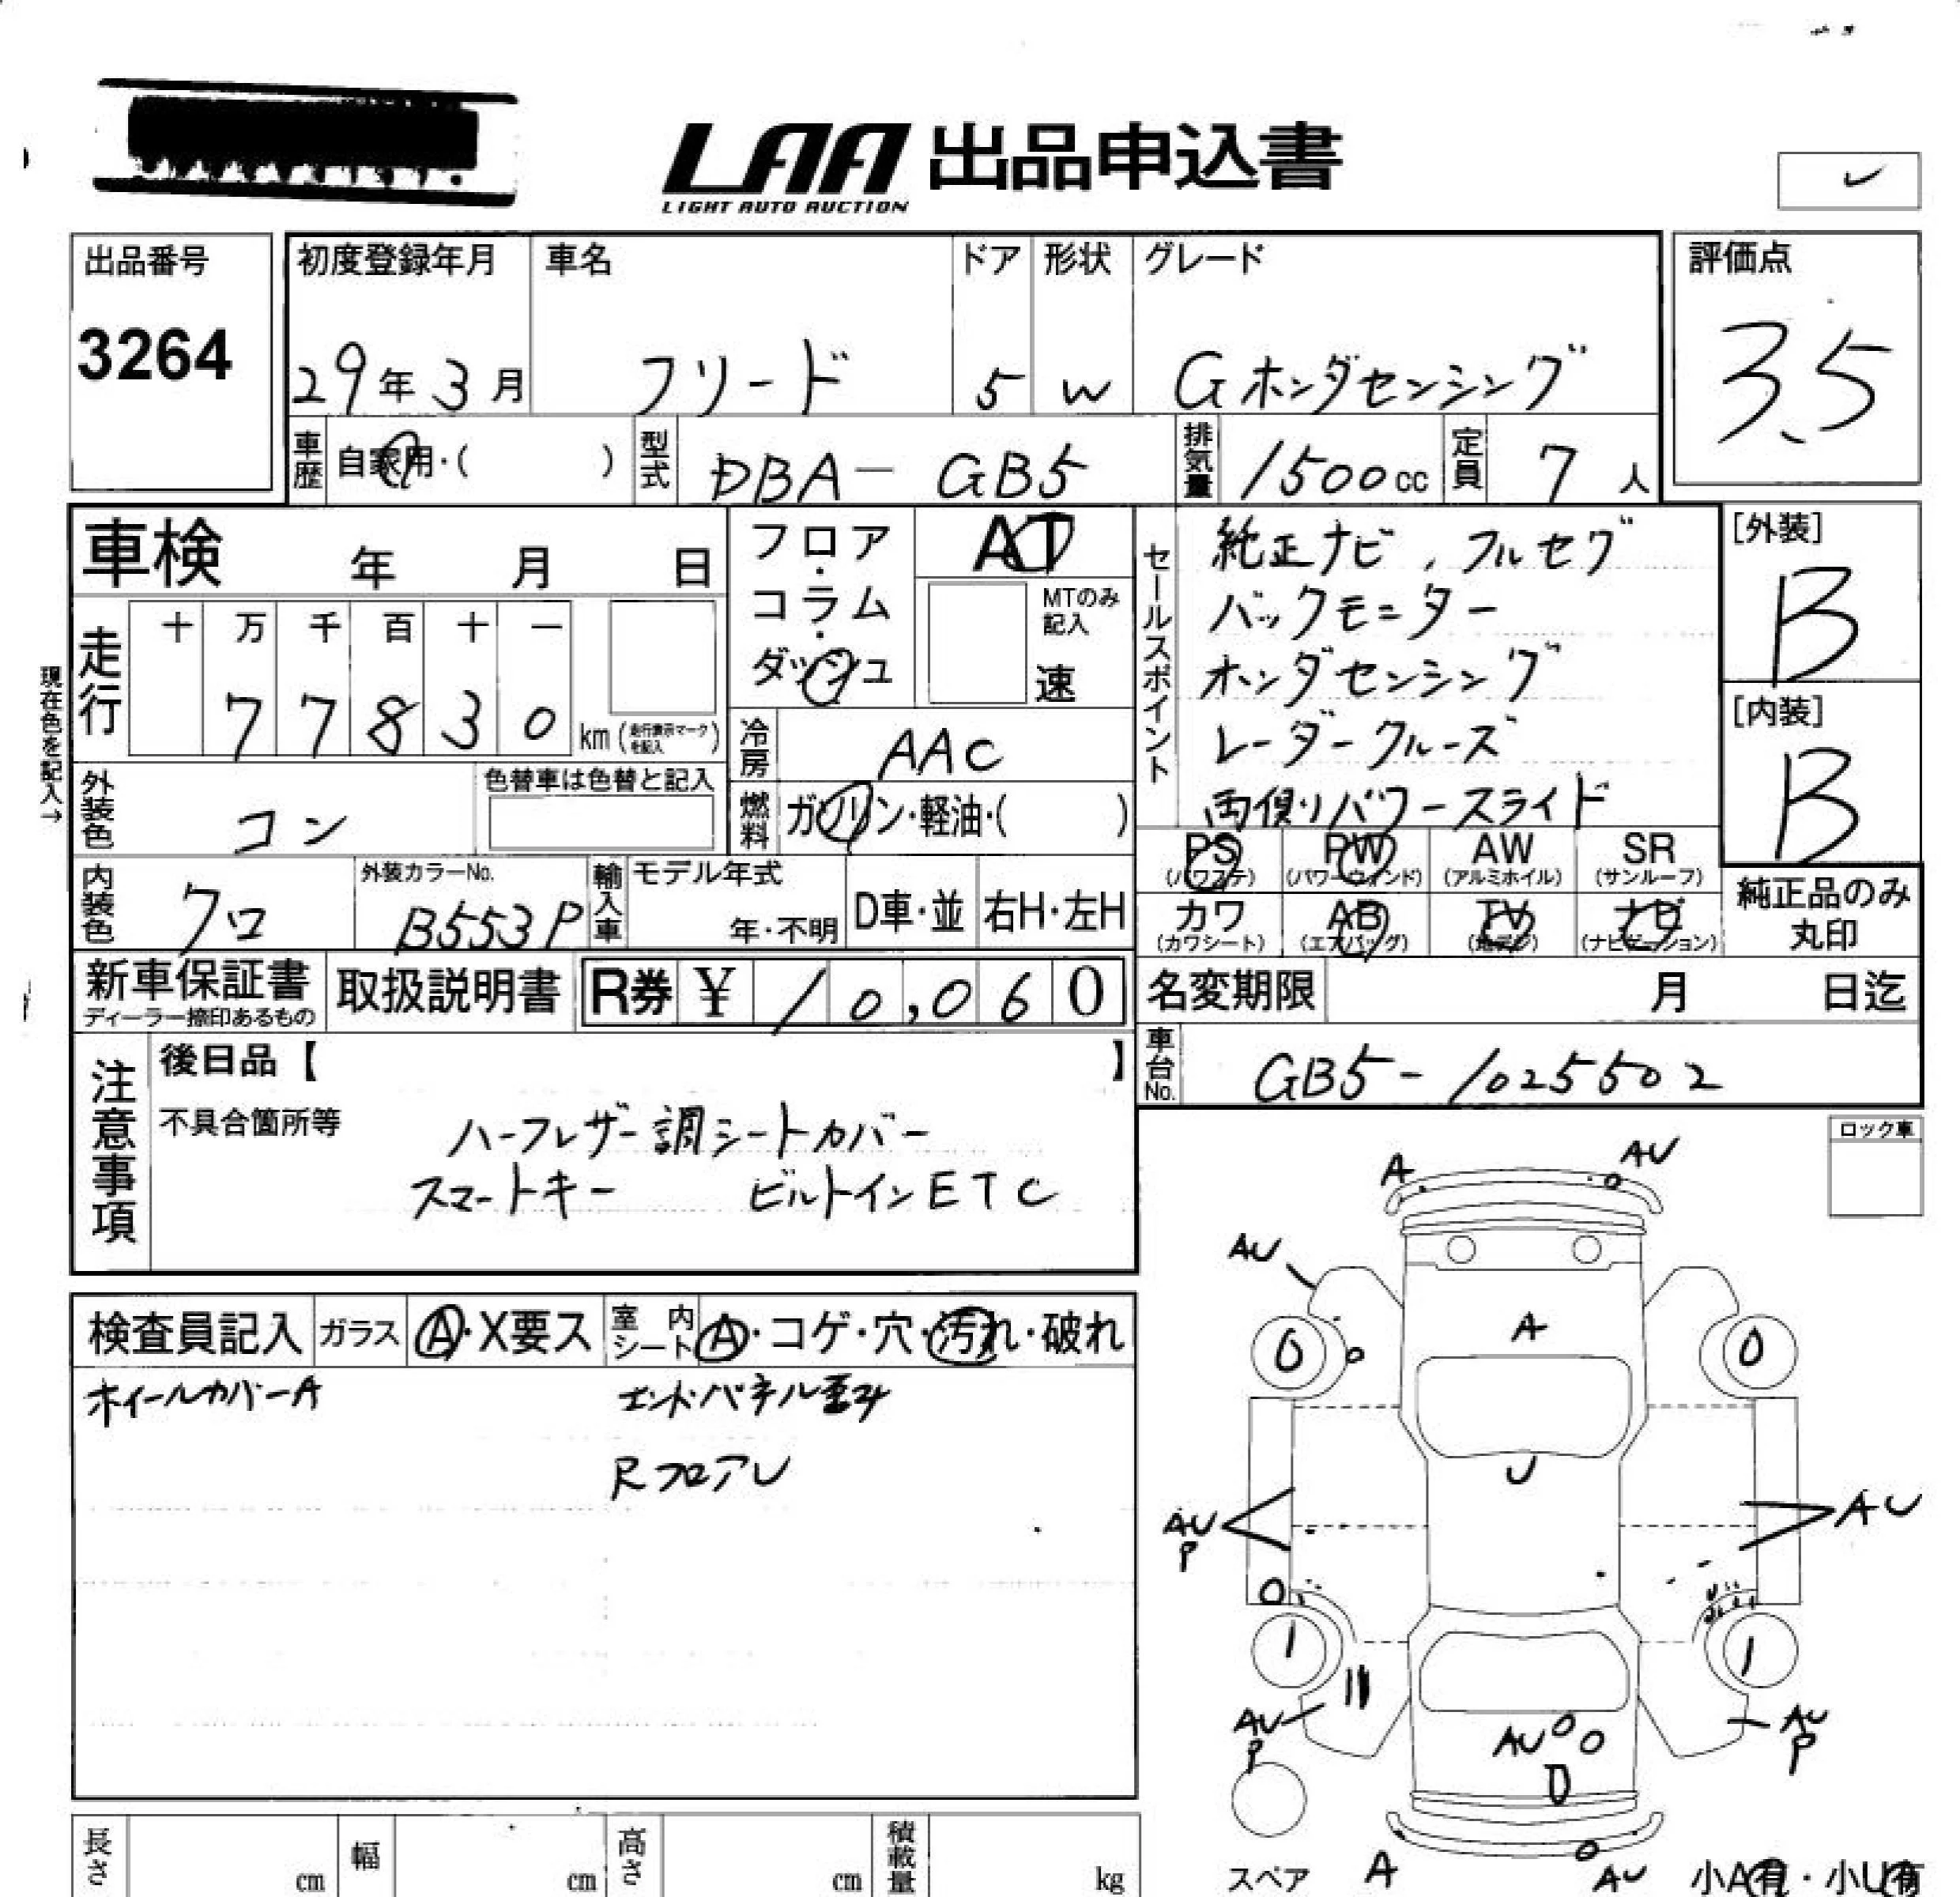 LAA 出品申込書
LIGHT AUTO AUCTION
出品番号
3264
初度登録年月
29年3月
車名
フリード
ドア
5
形状
W
グレード
Gホンダセンシング
評価点
3.5
車歴 自家用・( )
型式 DBA-GB5
排気量 1500cc
定員 7人
車検 年 月 日
現在色を記入→
走行 十 万 千 百 十 一
77830 km (走行表示マークを記入)
外装色 コン
色替車は色替と記入
内装色 クロ
外装カラーNo. B553P
輸入車 モデル年式 年・不明 D車・並 右H・左H
フロア・コラム・ダッシュ
AT
MTのみ記入
速
冷房 AAC
燃料 ガソリン・軽油・( )
セールスポイント
純正ナビ,フルセグ
バックモニター
ホンダセンシング
レーダークルーズ
両側パワースライド
[外装]
B
[内装]
B
PS(パワステ) PW(パワーウィンド) AW(アルミホイル) SR(サンルーフ)
カワ(カワシート) AB(エアバッグ) TV(地デジ) ナビ(ナビゲーション)
純正品のみ丸印
新車保証書
ディーラー捺印あるもの
取扱説明書
R券 ¥ 10,060
名変期限 月 日迄
車台No. GB5-1025502
注意事項
後日品【 】
不具合箇所等
ハーフレザー調シートカバー
スマートキー ビルトインETC
ロック車
検査員記入 ガラス A・X要ス 室内シート A・コゲ・穴・汚れ・破れ
ホイールカバーA エンドパネル歪み
RフロアU
A AU
AU
A
0 0
U
AU P
AU
1 1
AU P
AU P
AU
スペア
A
AU
小A有・小U有
長さ cm 幅 cm 高さ cm 積載量 kg